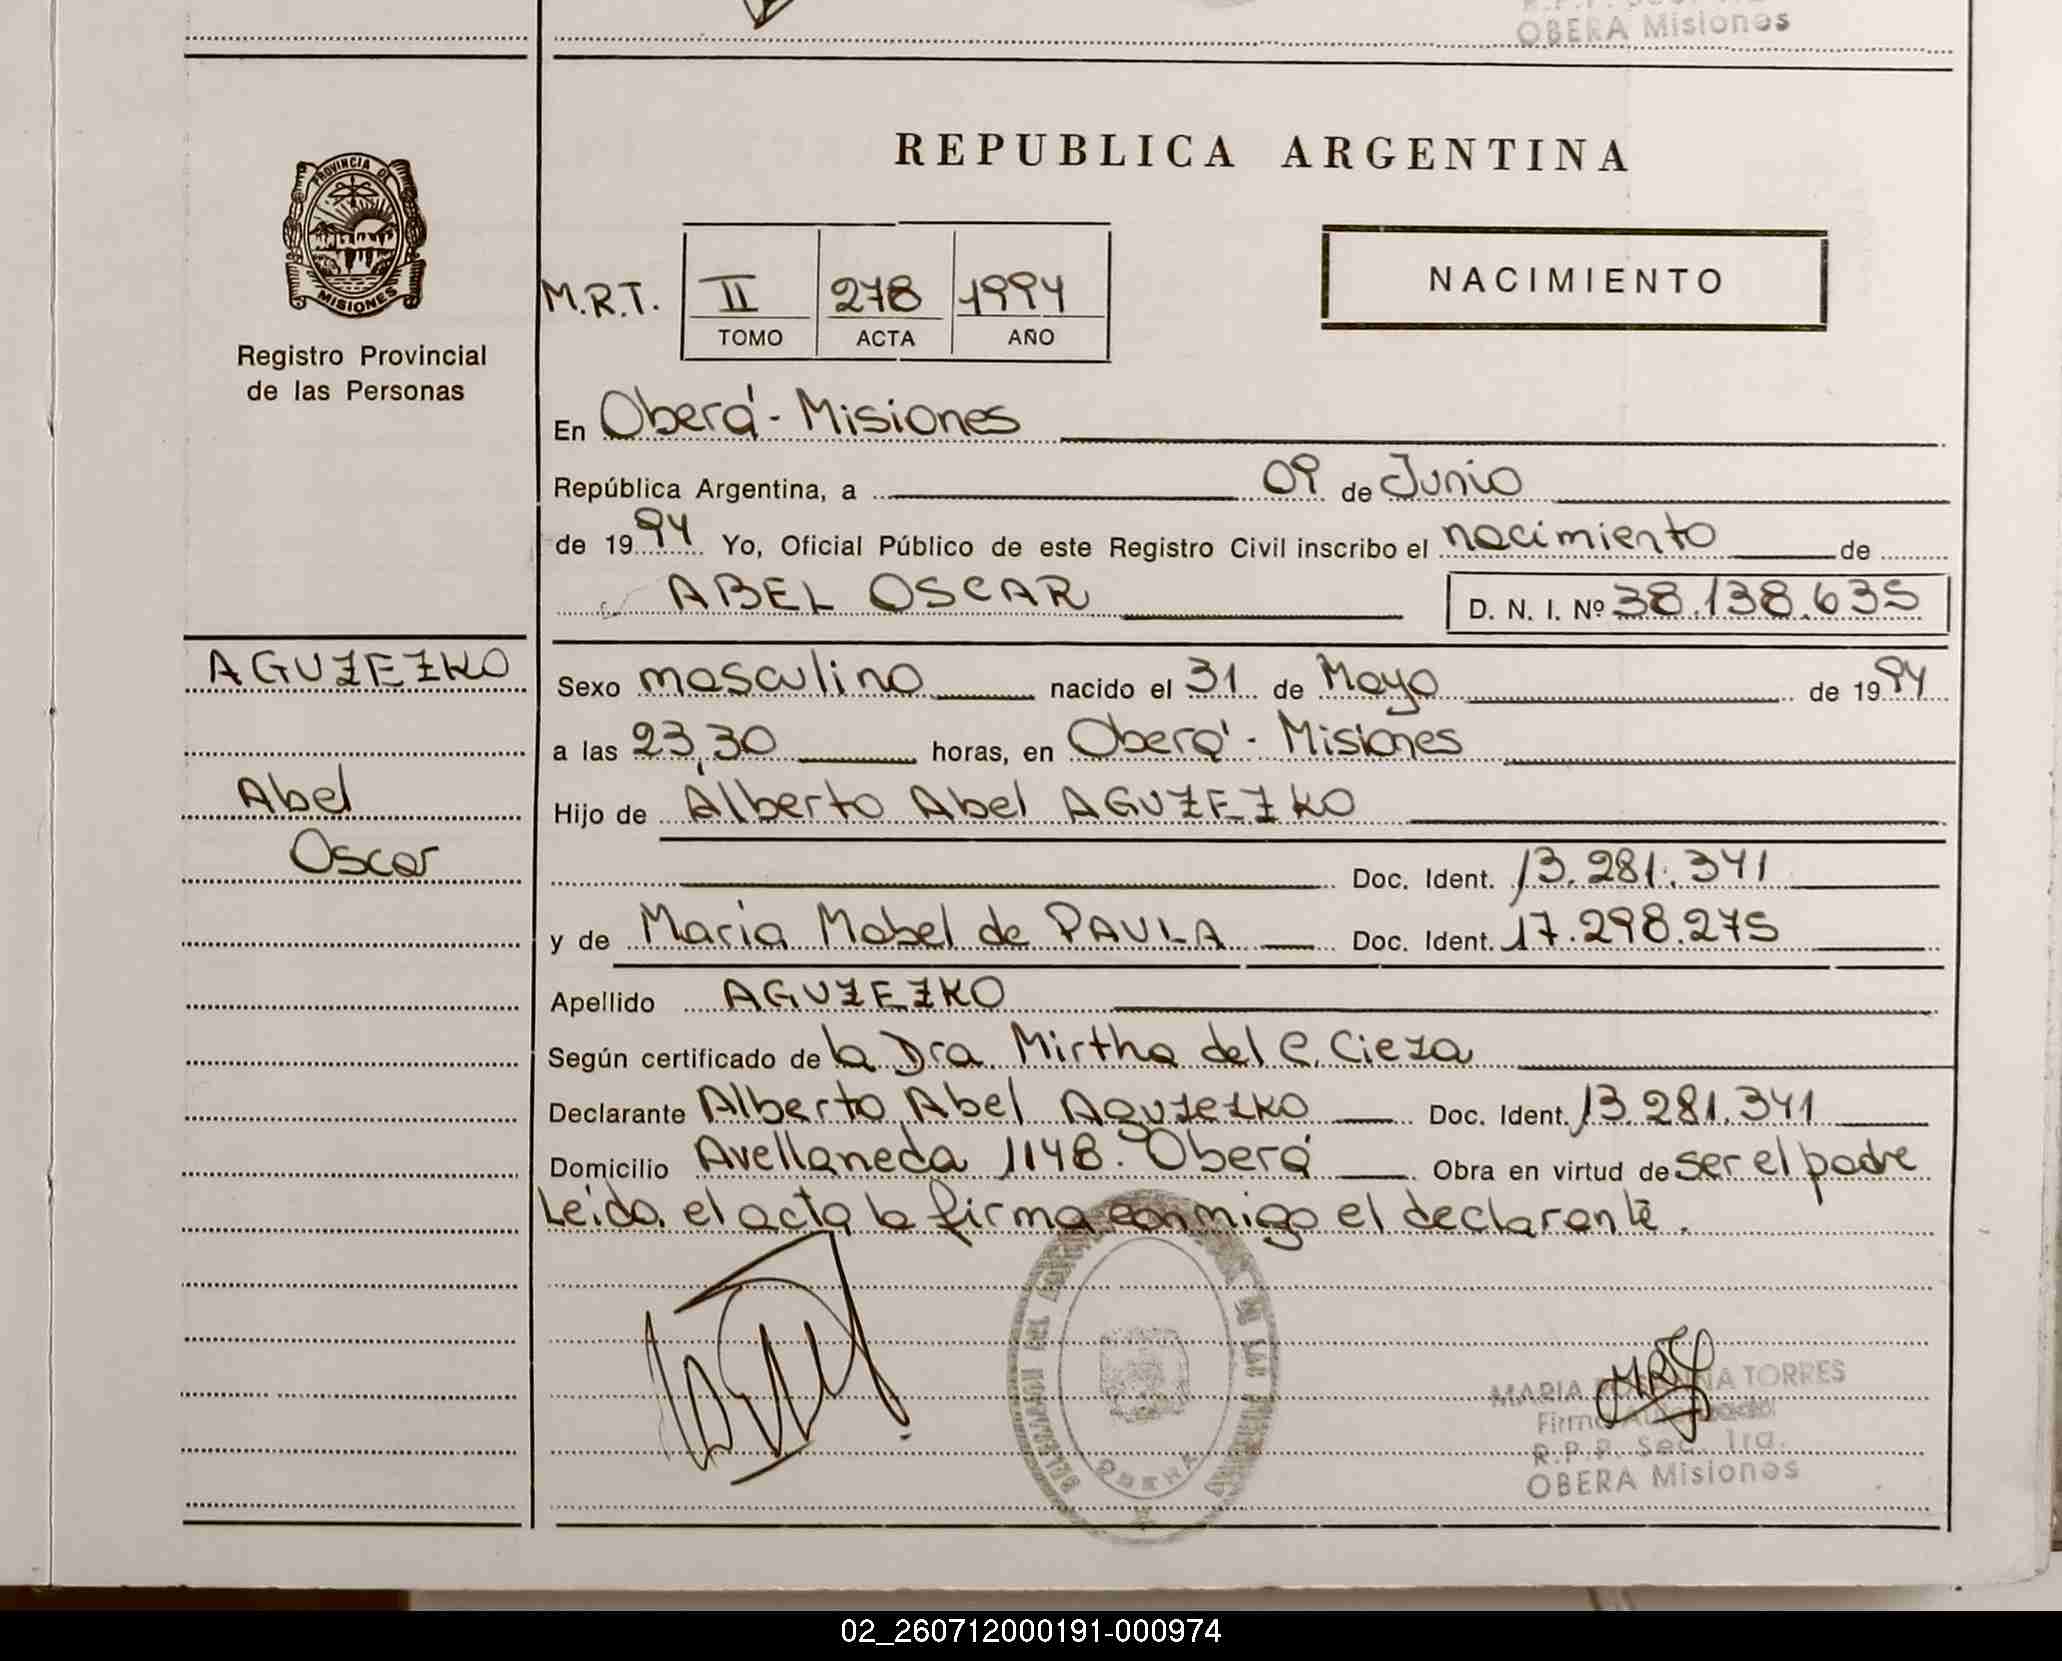 OBERA Misiones
REPUBLICA ARGENTINA
PROVINCIA DE
MISIONES
Registro Provincial
de las Personas
M.R.T. II 278 1994
TOMO ACTA AÑO
NACIMIENTO
En Oberá - Misiones
República Argentina, a 09 de Junio
de 1994 Yo, Oficial Público de este Registro Civil inscribo el nacimiento de
ABEL OSCAR D. N. I. Nº 38.138.635
AGUZEZKO
Abel
Oscar
Sexo masculino nacido el 31 de Mayo de 1994
a las 23,30 horas, en Oberá - Misiones
Hijo de Alberto Abel AGUZEZKO
Doc. Ident. 13.281.341
y de Maria Mabel de PAULA Doc. Ident. 17.298.275
Apellido AGUZEZKO
Según certificado de la Dra. Mirtha del C. Cieza
Declarante Alberto Abel Aguzezko Doc. Ident. 13.281.341
Domicilio Avellaneda 1148. Oberá Obra en virtud de ser el padre
Leida el acta la firma conmigo el declarante.
MARIA TORRES
R.P.P. Sec. 1ra.
OBERA Misiones
OBERA
02_260712000191-000974